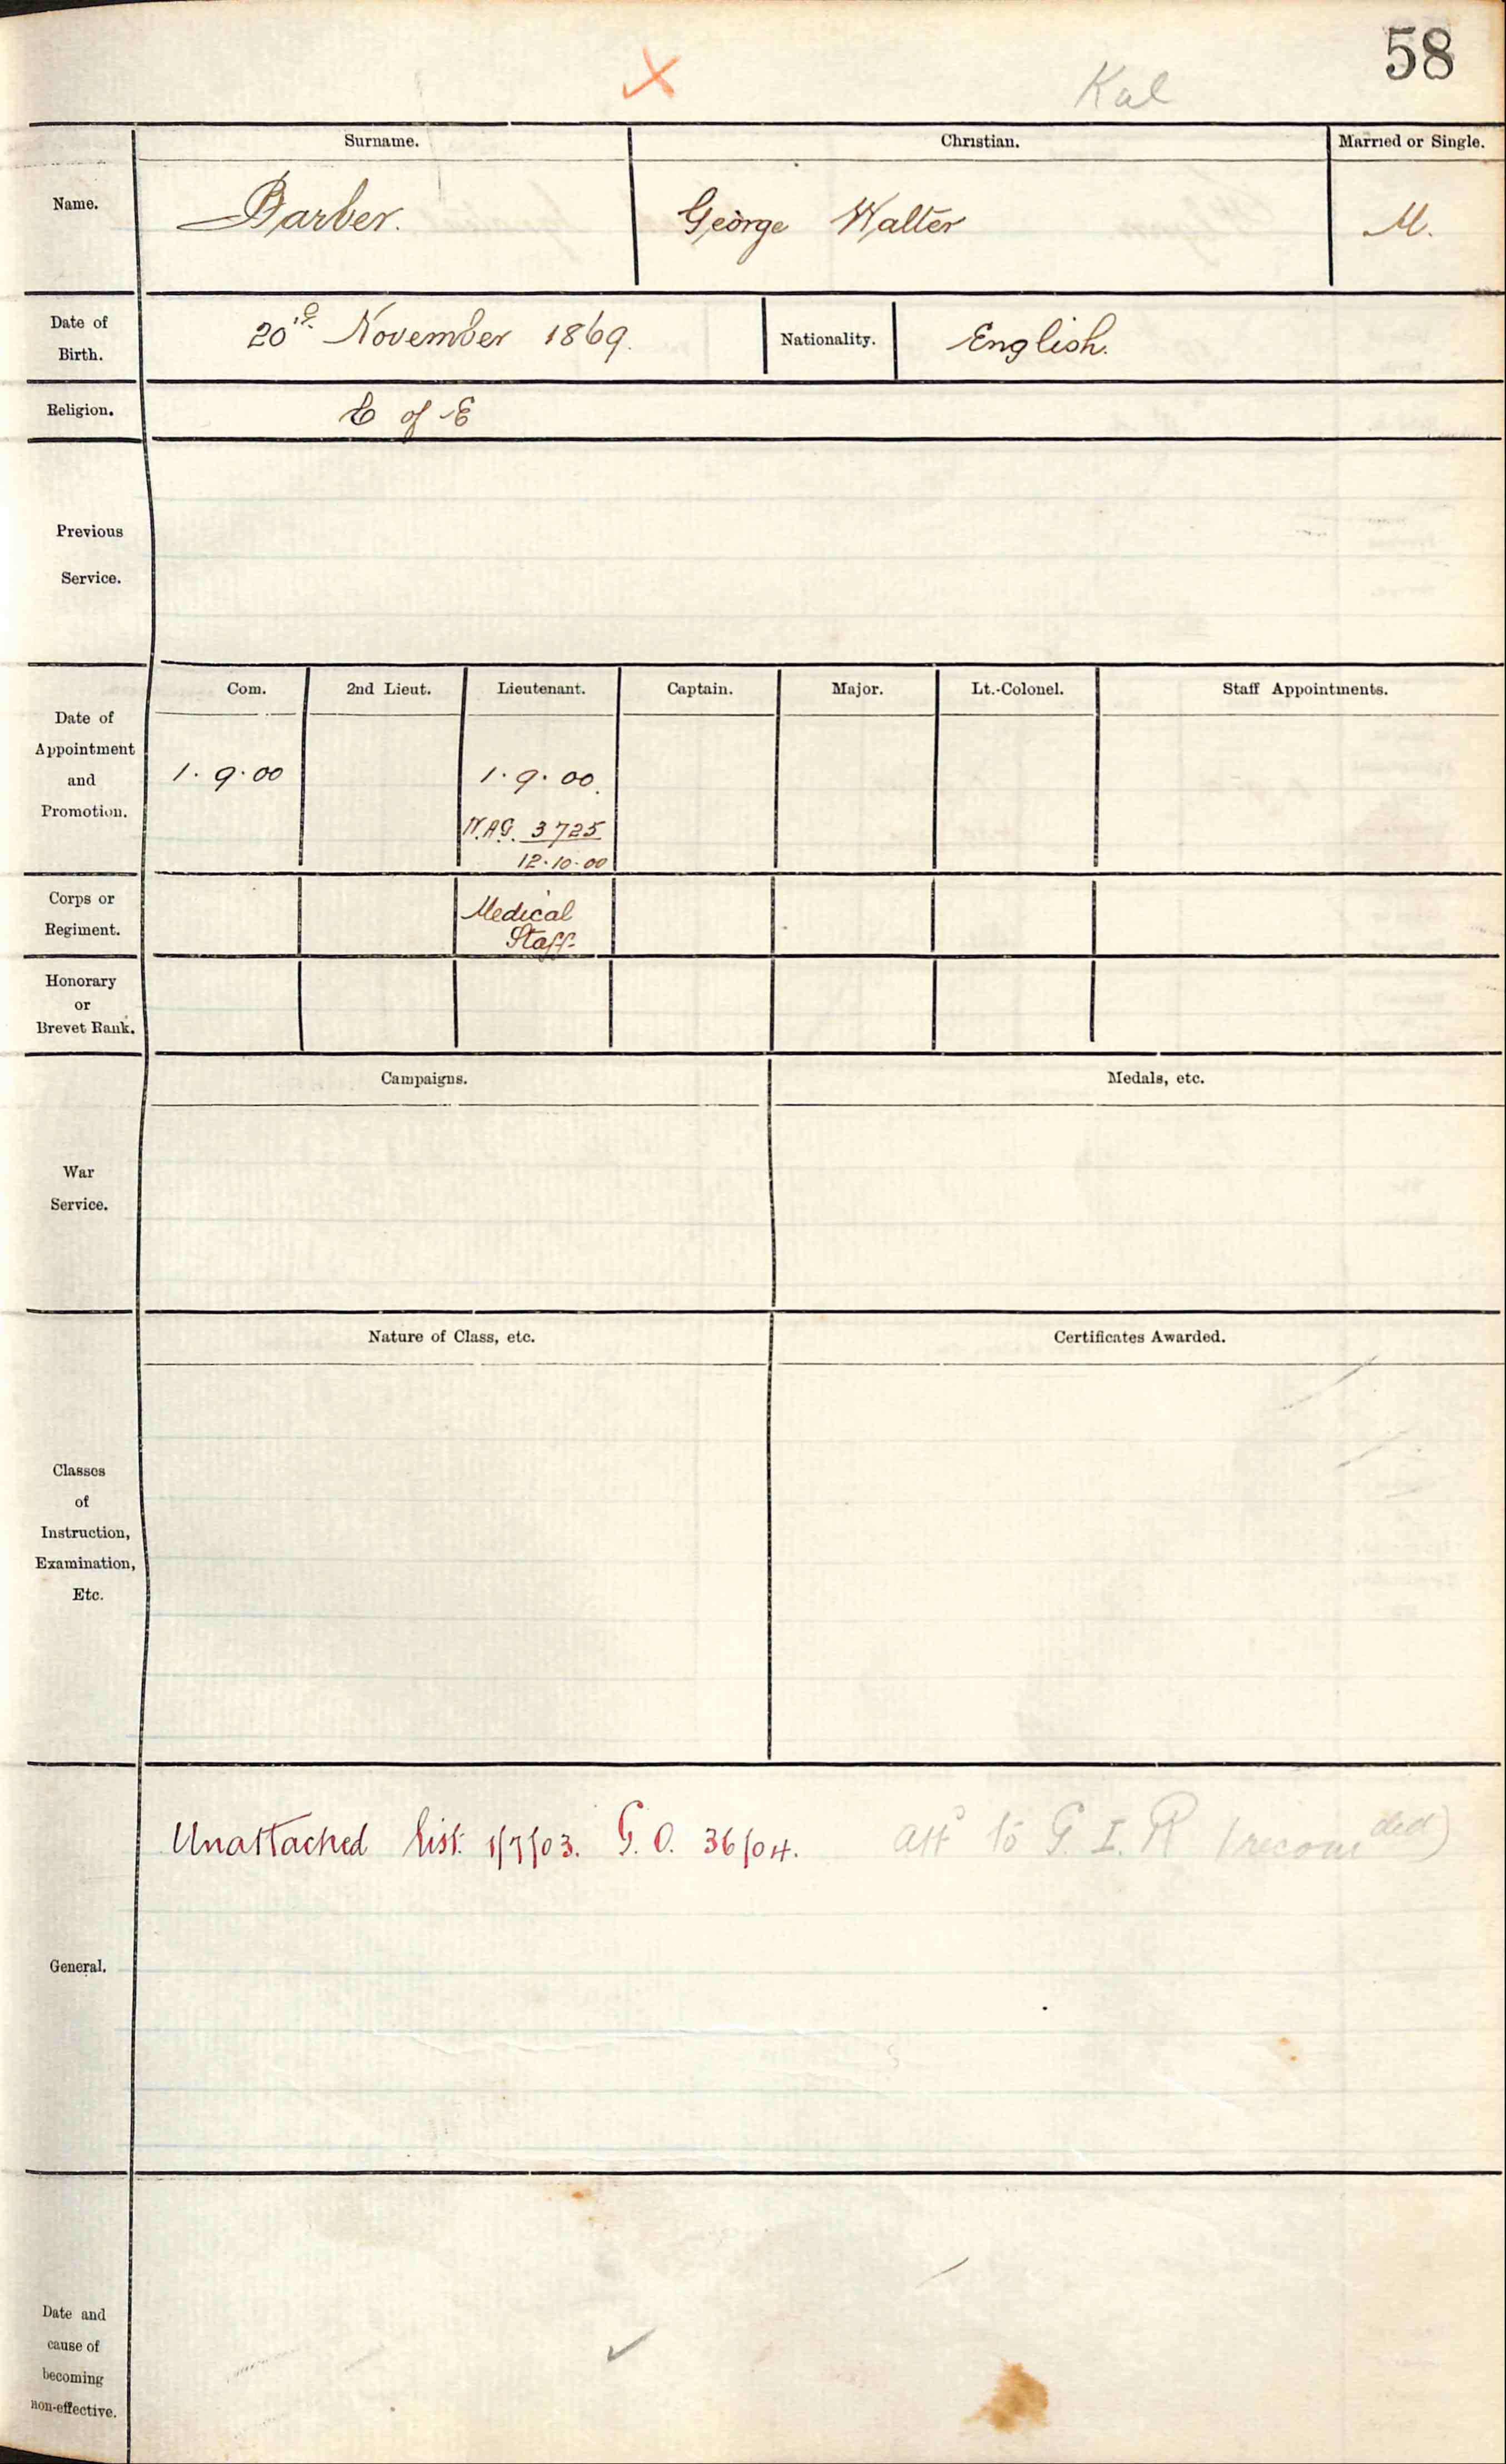 58
Kal
Surname. Christian. Married or Single.
Name. Barber. George Walter M.
Date of Birth. 20th November 1869. Nationality. English.
Religion. C of E
Previous
Service.
Com. 2nd Lieut. Lieutenant. Captain. Major. Lt.-Colonel. Staff Appointments.
Date of
Appointment
and
Promotion.
1.9.00 1.9.00.
W.A.G. 3725
12.10.00
Corps or
Regiment.
Medical
Staff
Honorary
or
Brevet Rank.
Campaigns. Medals, etc.
War
Service.
Nature of Class, etc. Certificates Awarded.
Classes
of
Instruction,
Examination,
Etc.
Unattached list. 1/7/03. G.O. 36/04. attd to G.I.R (recomded)
General.
Date and
cause of
becoming
non-effective.